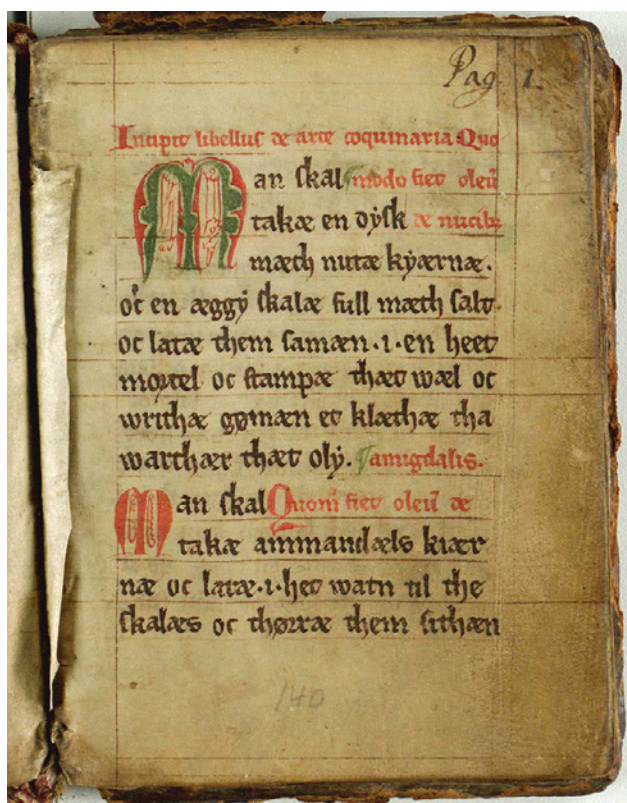 Pag 1.
Incipit libellus de arte coquinaria Quo
Man skal modo fiet oleū
takæ en dysk de nucibꝫ
mæth nutæ kyærnæ.
oc en æggy skalæ full mæth salt
oc latæ them samæn .i. en heet
mortel oc stampæ thæt wæl oc
writhæ gømæn et klæthæ tha
warthær thæt oly. ¶amigdalis.
Man skal Quom̄ fiet oleū de
takæ ammandæls kiær
næ oc latæ .i. het watn til the
skalæs oc thørræ them sithæn
140